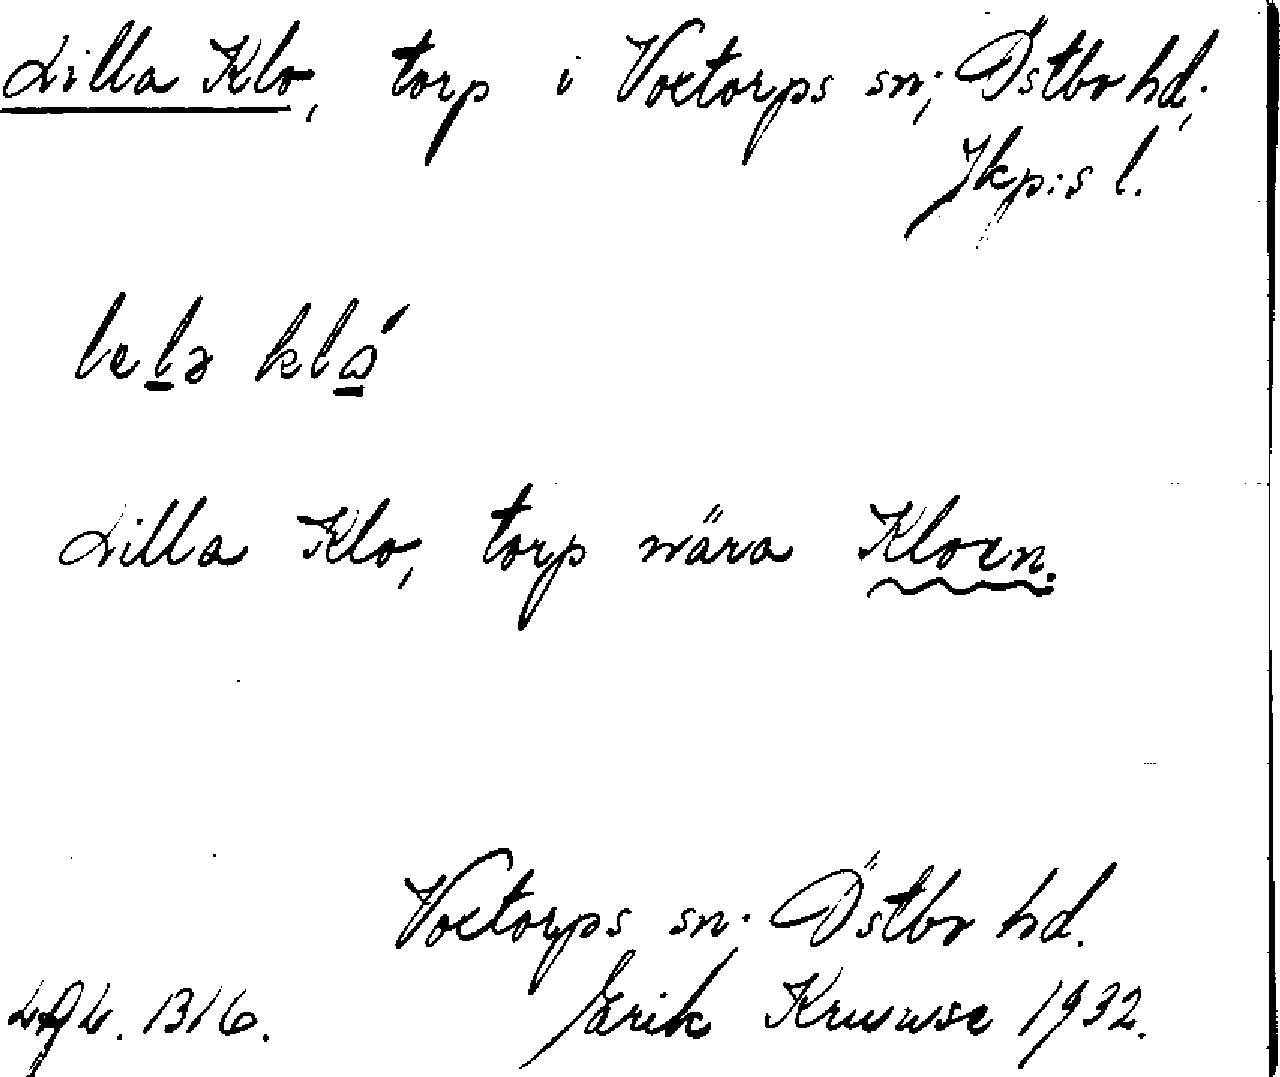 Lilla Klo, torp i Voxtorps sn; Östbo hd;
Jkp:s l.
lelə klɷ́
Lilla Klo, torp nära Kloen.
Voxtorps sn. Östbo hd.
Erik Kruuse 1932.